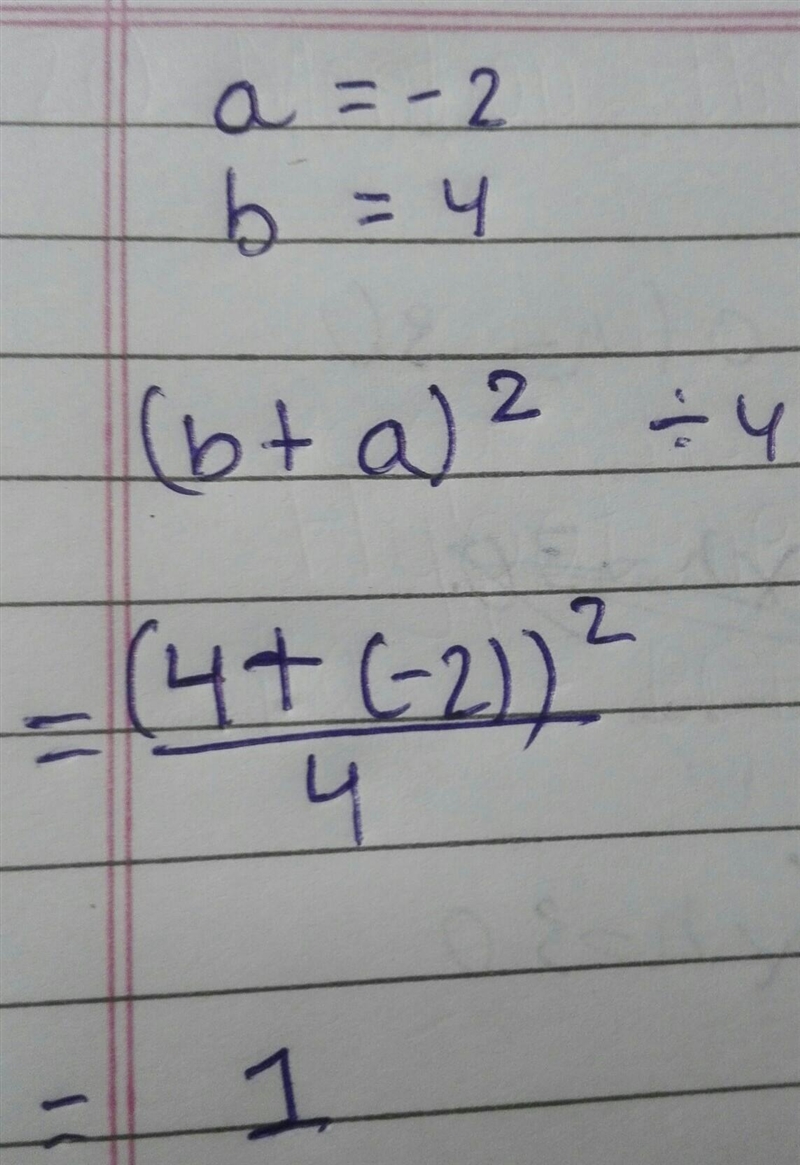 a = -2
b = 4
(b + a)² ÷ 4
= (4 + (-2))²
4
= 1